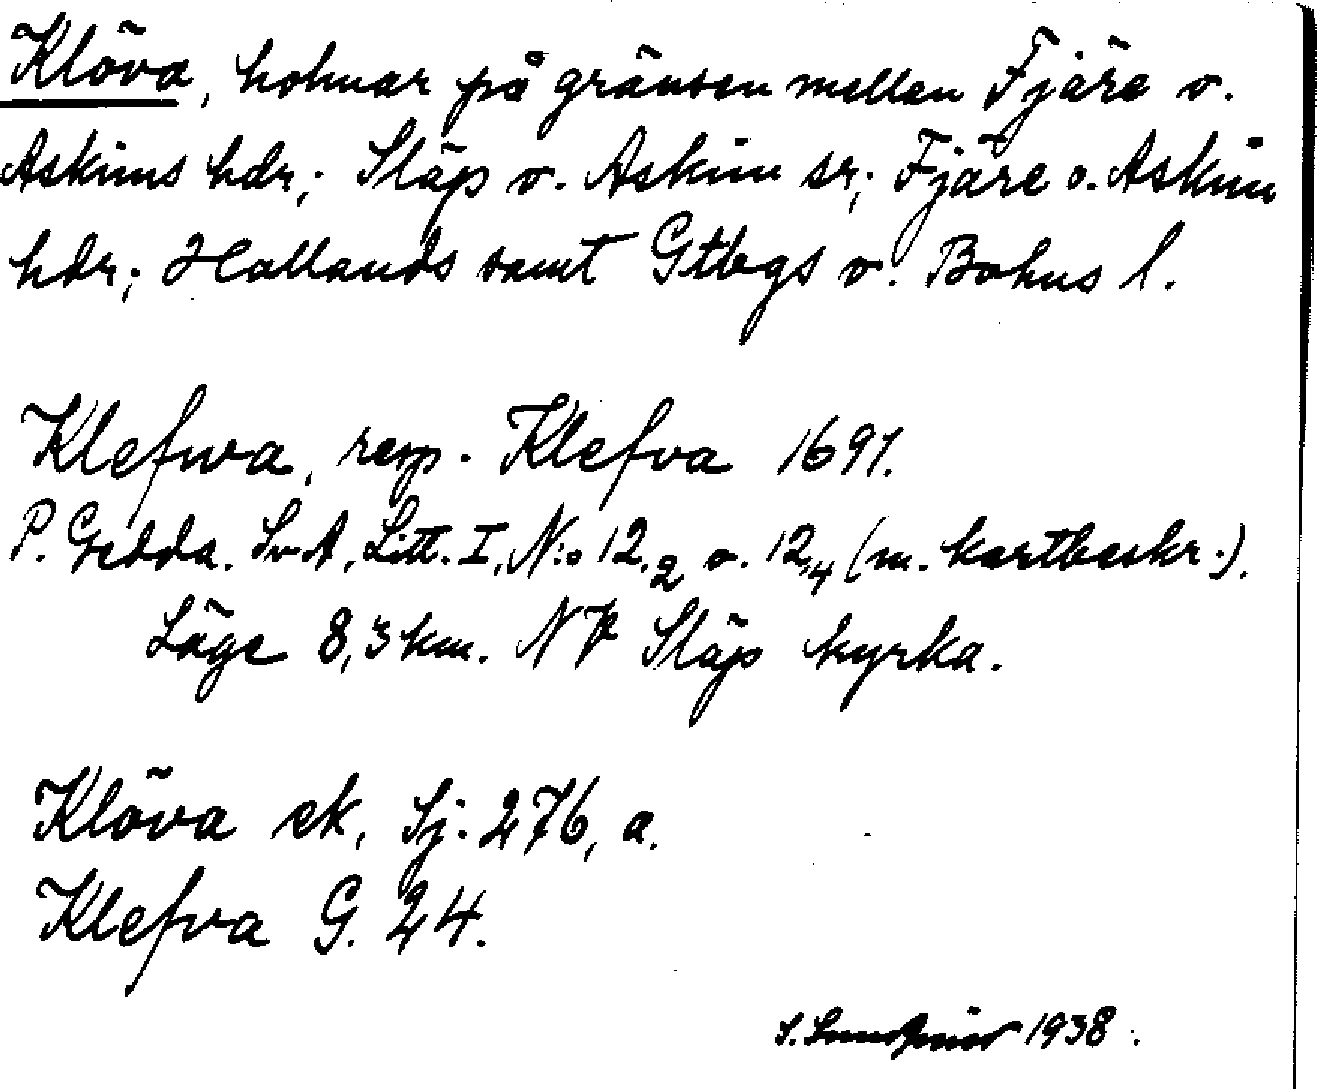 Klöva, holmar på gränsen mellan Fjäre o.
Askims hdr; Släp o. Askim sr; Fjäre o. Askim
hdr; Hallands samt Gtbgs o. Bohus l.
Klefwa, resp. Klefva 1691.
P. Gedda. SvA, Litt. I, N:o 12,2 o. 12,4 (m. kartbeskr.).
Läge 8,3 km. NV Släp kyrka.
Klöva ek. Sj. 276, a.
Klefva G. 24.
S. 1938.